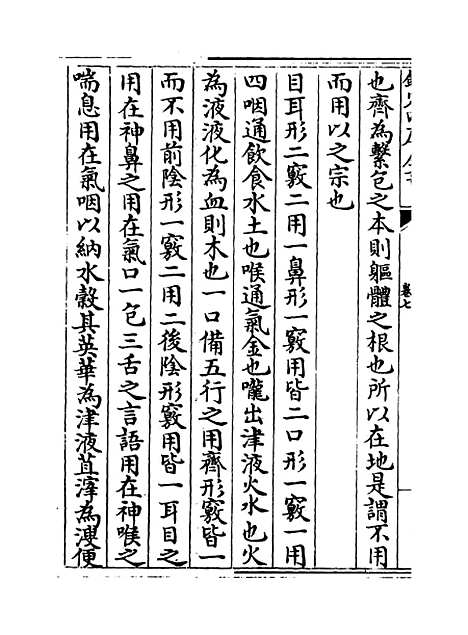 卷七
也齊為繫包之本則軀體之根也所以在地是謂不用
而用以之宗也
目耳形二竅二用一鼻形一竅用皆二口形一竅一用
四咽通飲食水土也喉通氣金也嚨出津液火水也火
為液液化為血則木也一口備五行之用齊形竅皆一
而不用前陰形一竅二用二後陰形竅用皆一耳目之
用在神鼻之用在氣口一包三舌之言語用在神喉之
喘息用在氣咽以納水穀其英華為津液苴滓為溲便